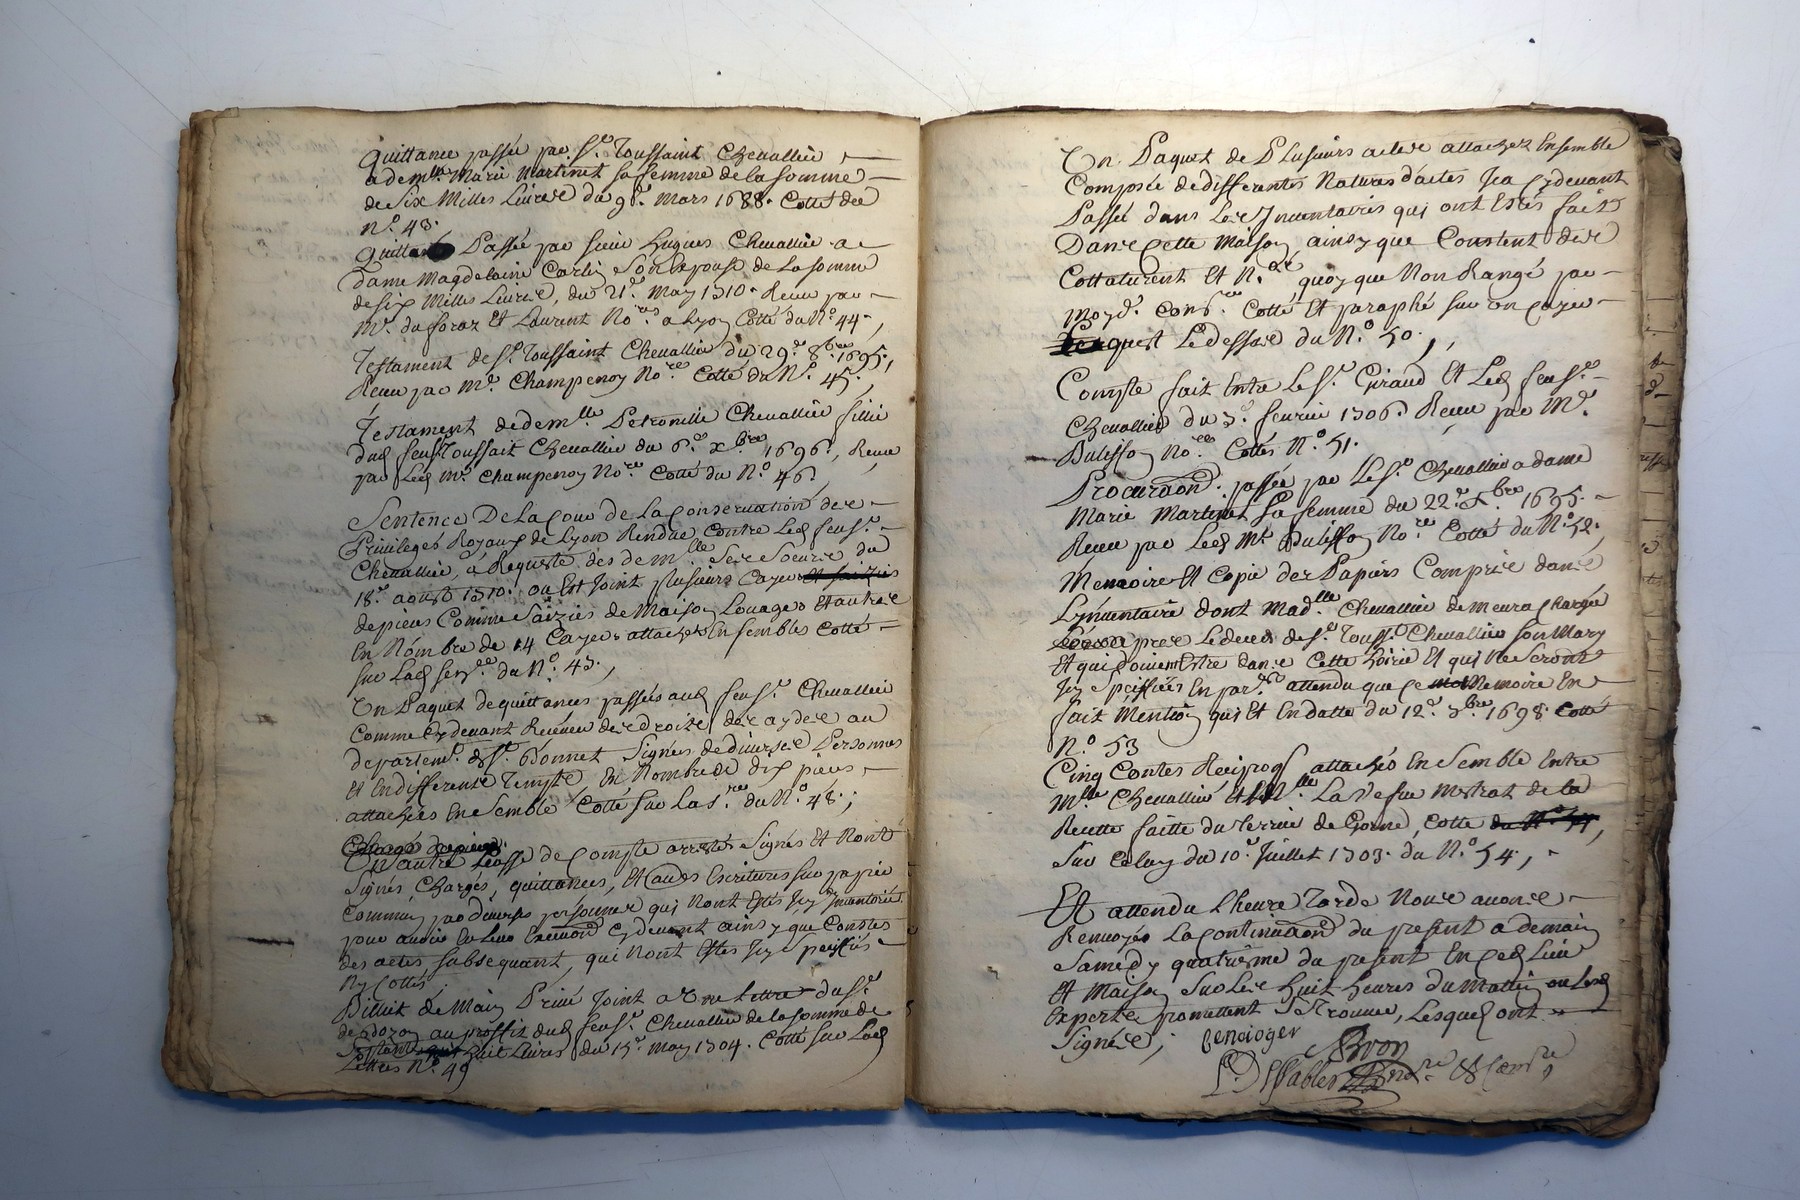 Quittance passée par Sr. Toussaint Chevallier
a demlle Marie Martinet sa femme de la somme
de Six Milles Livres du 9e. Mars 1688. Cotté du
No. 43.
Quittance Passée par sieur Hugues Chevallier a
Dame Magdelaine Carlin Son Epouse de La somme
de six Milles Livres, du 21e. May 1710. Receu par
Me. du foraz Et Laurent Nores a Lyon Cotté du No. 44.,
Testament de Sr. Toussaint Chevallier du 29e. 8bre 1695,
Receu par Me. Champenoy Nore. Cotté du No. 45.,
Testament de demlle Petronille Chevallier fillie
dud feu Sr Toussait Chevallier du 6e xbre 1696, Receu
par Led Me. Champenoy Nore Cotté du No. 46,
Sentence De La Cour de La Conservation des
Privileges Royaux de Lyon Rendue Contre Led feu Sr.
Chevallier, a Requeste des demlle Ses Soeurs du
18e. aoust 1710. ou Est Joint plusieurs Cayers et saizies
de pieces Comme Saizies de Maison Louages Et autres
En Nombre de 14 Cayers attachés Ensembles Cotté
sur Lad sence du No. 47.,
Un Paquet de quittances passées aud feu Sr. Chevallier
Comme Cy devant Receveur des droits des aydes au
departemt. de St. Bonnet Signés de diverses Personnes
Et En differents Temps En Nombre de dix pieces
attachées En Semble Cotté sur La 1re du No. 48.;
Un autre Liasse de Compte arrestés Signés Et Nont
Signés Chargés, quittances, Et autres Escritures sur papier
Commun par diverses personnes qui Nont Estés Icy Inventoriés
pour avoir En Leur Cy devant ainsy que Constes
des actes subsequant, qui Nont Estes Icy Speciffiés
Ny Cottés
Billiet de Main Privé Joint a Une Lettre du Sr.
au proffit dud feu Sr. Chevallier de La Somme de
huit Livres du 15e. May 1704. Cotté sur Lad
Lettres No. 49
Un Paquet de Plusieurs actes attachez Ensemble
Composée de differentes Natures d'actes Ja Cy devant
Passée dans Les Inventaires qui ont Estés faits
Dans Cette Maison ainsy que Constent des
Cottatures Et N. quoy que Non Rangé par
moyd. Cons.re Cotté Et paraphé sur un Cayer
quest Le dessus du No. 50.,
Compte fait Entre Le Sr. Giraud Et Led feu Sr.
Chevallier du 3e. fevrier 1706. Receu par Me.
Dulisson Nore. Cottés No. 51.
Procuraon. passée par Le Sr. Chevallier a dame
Marie Martinet Sa femme du 22e xbre 1695.
Receu par Led Me Dulisson Nore Cotté du No. 52,
Memoire Et Copie des Papiers Compris dans
L'Inventaire dont Madlle Chevallier demeura Chargée
apres Le deced de Sr Tousst Chevallier son Mary
Et qui doivent Estre dans Cette hoirie Et qui Ne Seront
Icy Speciffiés En par. attendu que Ce mot Memoire En
fait Mention qui Et En datte du 12e. 7bre 1698. Cotté
No. 53
Cinq Contes Reciproq attachés En Semble Entre
Mlle Chevallier Et Mlle La Vefve Mestrat de la
Recette faitte du Terrier de , Cotté du No. 54,
Sur Celuy du 10e. Juillet 1703. du No. 54,
Et attendu L'heure Tarde Nous avons
Renvoyés La Continuaon du present a demain
Samedy quatrième du present En Ced Lieu
Et Maison Sur Les huit heures du Mattin ou Lesd
Experts promettent Se Trouver, Lesquels ont
Signés;